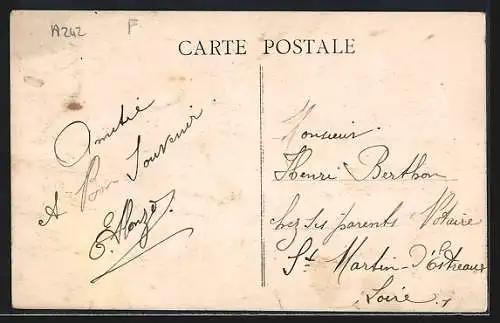 A242
F
CARTE POSTALE
Amitié
& Bon Souvenir
Monsieur
Henri Berthon
chez ses parents Notaire
St Martin-d'Estreaux
Loire